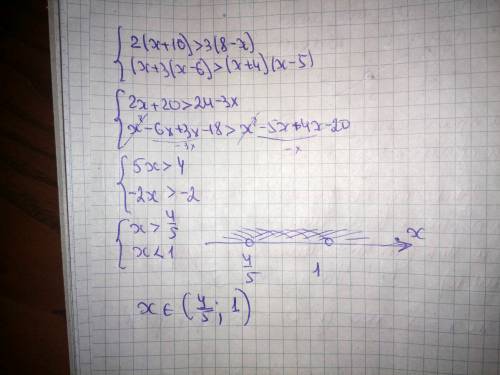 { 2(x+10)>3(8-x)
(x+3(x-6)>(x+4)(x-5)
{ 2x+20>24-3x
x²-6x+3x-18> x²-5x+4x-20
-3x -x
{ 5x>4
-2x>-2
{ x> 4/5
x<1
x
4/5 1
x∈(4/5; 1)